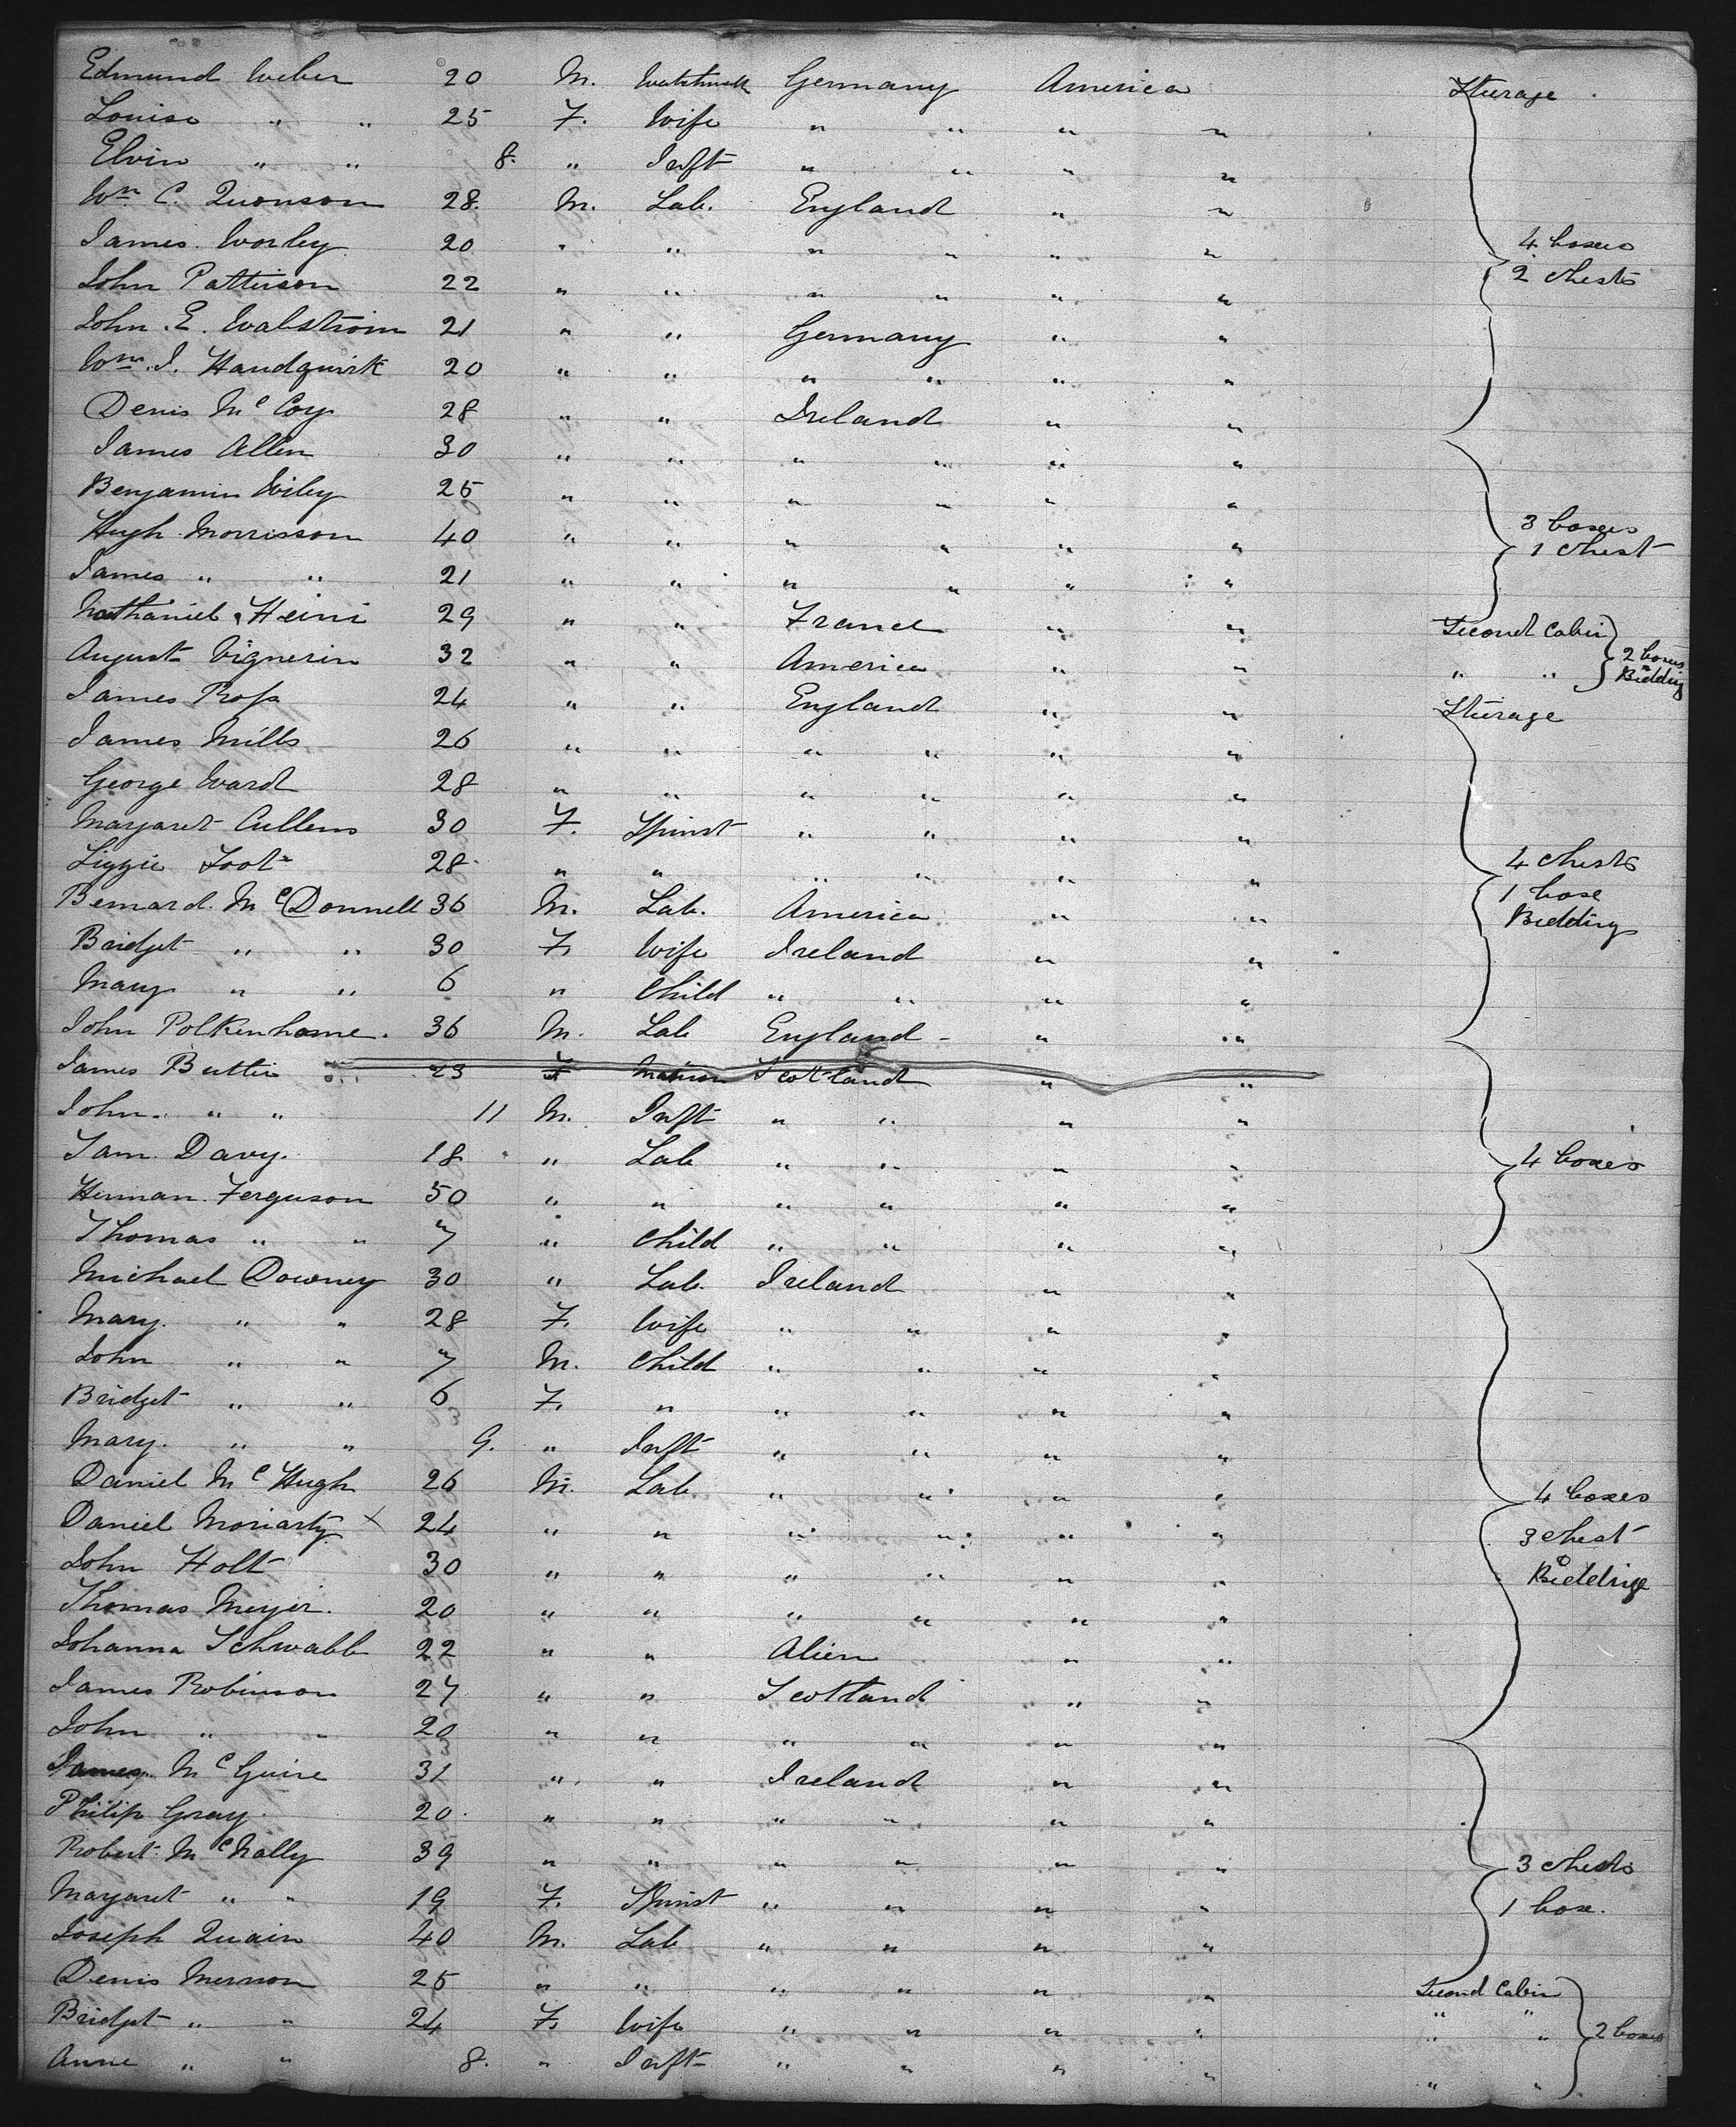 Edmund Weber 20 M. Watchmak Germany America Sturage
Louise " " 25 F. Wife " " " "
Elvin " " 8. " Inft " " " "
Wm C. Quonson 28. M. Lab. England " "
James Worley 20 " " " " " " 4 boxes
John Patterson 22 " " " " " " 2 chests
John E. Walstrom 21 " " Germany " "
Wm J. Handquirk 20 " " " " " "
Denis McCoy 28 " " Ireland " "
James Allen 30 " " " " " "
Benjamin Wiley 25 " " " " " "
Hugh Morrisson 40 " " " " " " 3 boxes
James " " 21 " " " " " " 1 chest
Nathaniel Heini 29 " " France " " Second Cabin
August Vignerin 32 " " America " " " " 2 boxes Bedding
James Ross 24 " " England " " Sturage
James Mills 26 " " " " " "
George Ward 28 " " " " " "
Margaret Cullens 30 F. Spinst " " " "
Lizzie Foot 28 " " " " " " 4 chests
Bernard McDonnell 36 M. Lab. America " " 1 box
Bridget " " 30 F. Wife Ireland " " Bedding
Mary " " 6 " Child " " " "
John Polkenhorne. 36 M. Lab England " "
James Buttir 23 F Matron Scotland " "
John " " 11 M. Inft " " " "
Sam Davy. 18 " Lab " " " " 4 boxes
Herman Ferguson 50 " " " " " "
Thomas " " 7 " Child " " " "
Michael Downey 30 " Lab. Ireland " "
Mary. " " 28 F. Wife " " " "
John " " 7 M. Child " " " "
Bridget " " 6 F. " " " " "
Mary. " " 9. " Inft " " " "
Daniel McHugh 26 M. Lab " " " " 4 boxes
Daniel Moriarty x 24 " " " " " " 3 chest
John Holt 30 " " " " " " Bedding
Thomas Meyer. 20 " " " " " "
Johanna Schwabb 22 " " Alien " "
James Robinson 27 " " Scotland " "
John " " 20 " " " " " "
James McGuire 31 " " Ireland " "
Philip Gray. 20. " " " " " "
Robert McNally 39 " " " " " " 3 chests
Margaret " " 19 F. Spinst " " " " 1 box.
Joseph Quain 40 M. Lab " " " "
Denis Mernon 25 " " " " " " Second Cabin
Bridget " " 24 F. Wife " " " " " " 2 boxes
Anne " " 8. " Inft " " " " " "